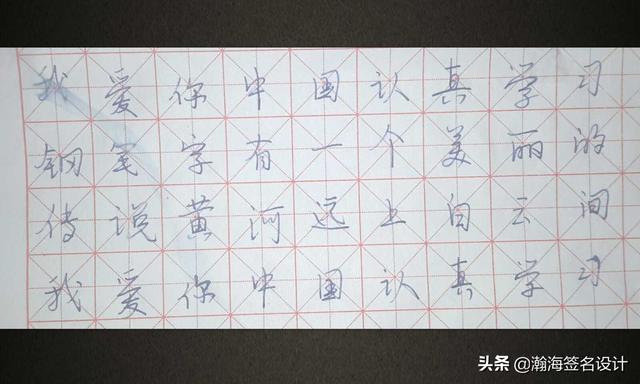 我爱你中国认真学习
钢笔字有一个美丽的
传说黄河远上白云间
我爱你中国认真学习
头条@瀚海签名设计